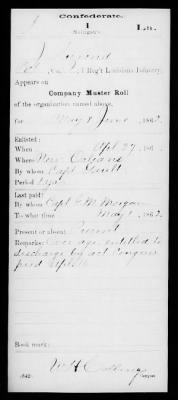 Confederate.
1
La.
Reg't Louisiana Infantry.
Appears on
Company Muster Roll
of the organization named above,
for May & June, 1862.
Enlisted:
When Apl 27, 186
Where New Orleans
By whom Capt
Period 1 yr
Last paid:
By whom Capt Morgan
To what time May 1, 1862.
Present or absent Present
Remarks: Over age entitled to
discharge by act Congress
Book mark:
(642) Copyist.